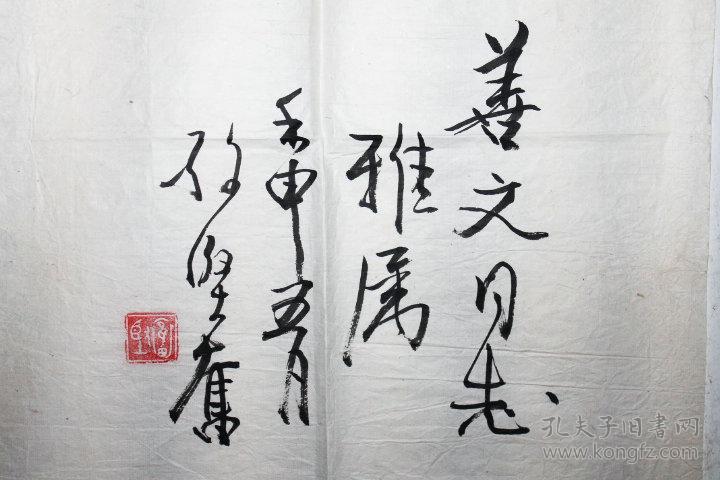 善文同志
雅属
壬申五月
坚奋
孔夫子旧书网
www.kongfz.com